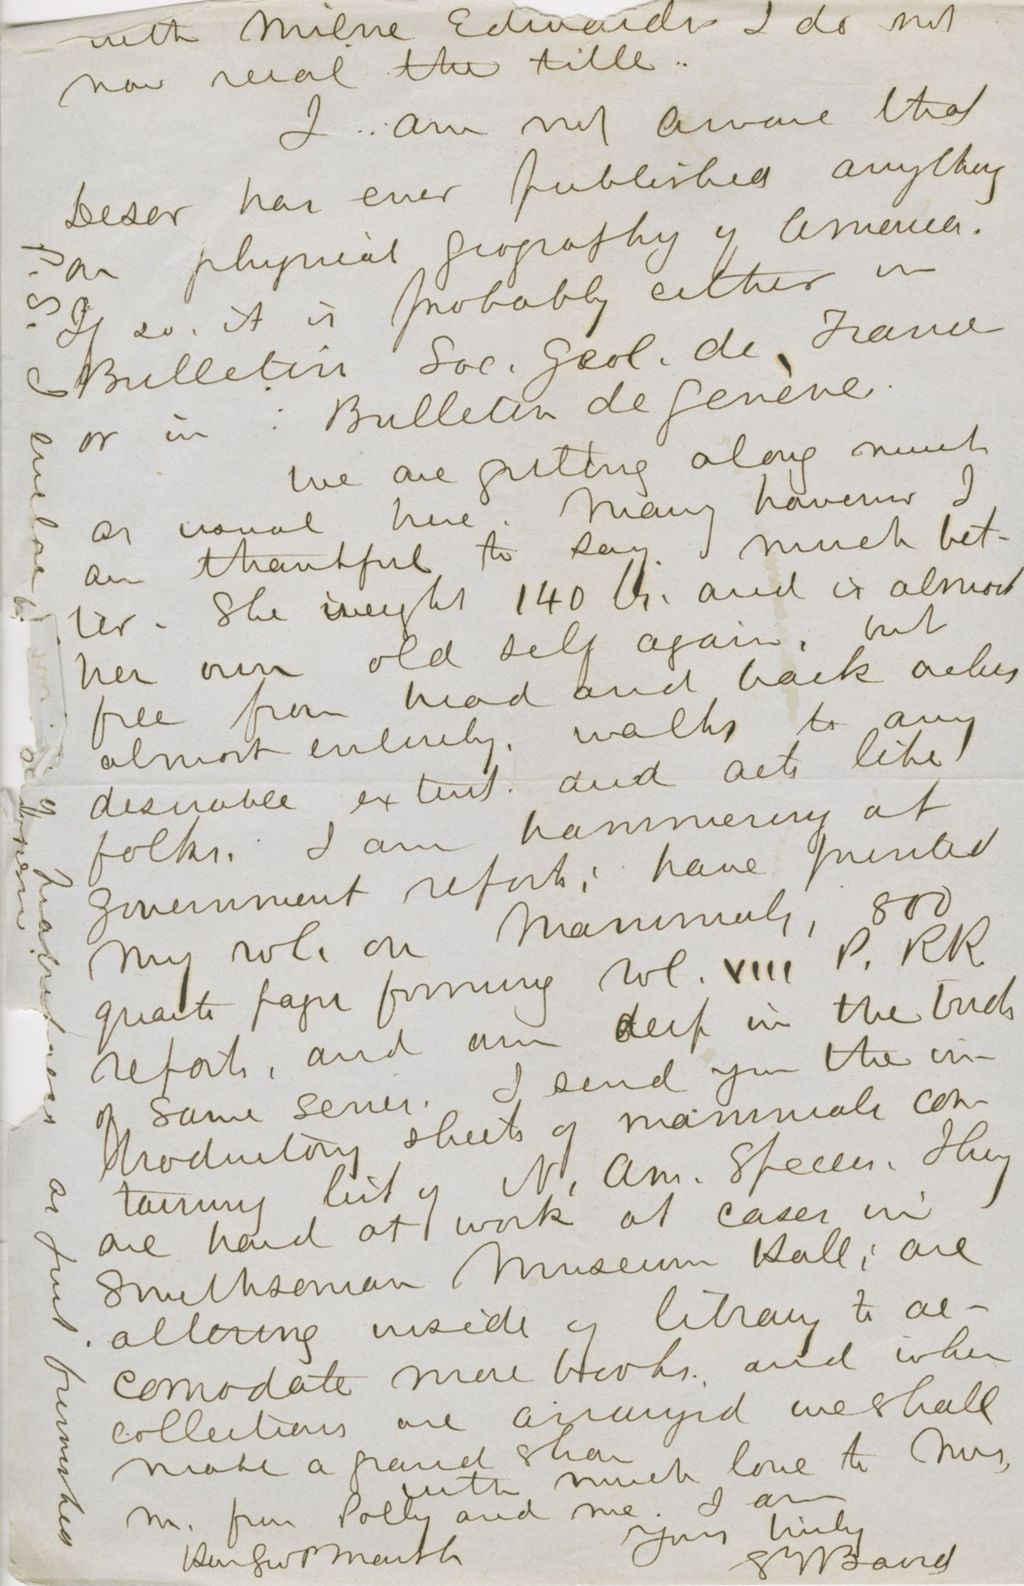 with Milne Edwards I do not
now recal the title.
I am not aware that
Desor has ever published anything
on physical geography of America.
If so. it is probably either in
Bulletin Soc. Geol. de France
or in Bulletin de Genève.
We are getting along much
as usual here. Mary however I
am thankful to say much bet-
ter. She weighs 140 lbs. and is almost
her own old self again, but
free from head and back aches
almost entirely. walks to any
desirable extent. and acts like
folks. I am hammering at
government reports; have printed
my vol. on Mammals, 800
quarto pages forming vol. VIII P. RR.
reports, and am deep in the birds
of same series. I send you the in-
troductory sheets of mammals con-
taining list of N. Am. Species. They
are hard at work at cases in
Smithsonian Museum Hall; are
altering inside of library to ac-
comodate more books. and when
collections are arranged we shall
make a grand show
with much love to Mrs.
M. from Polly and me. I am
Yours truly
S F Baird
Hon Geo P Marsh
P.S. I enclose
of as just furnished